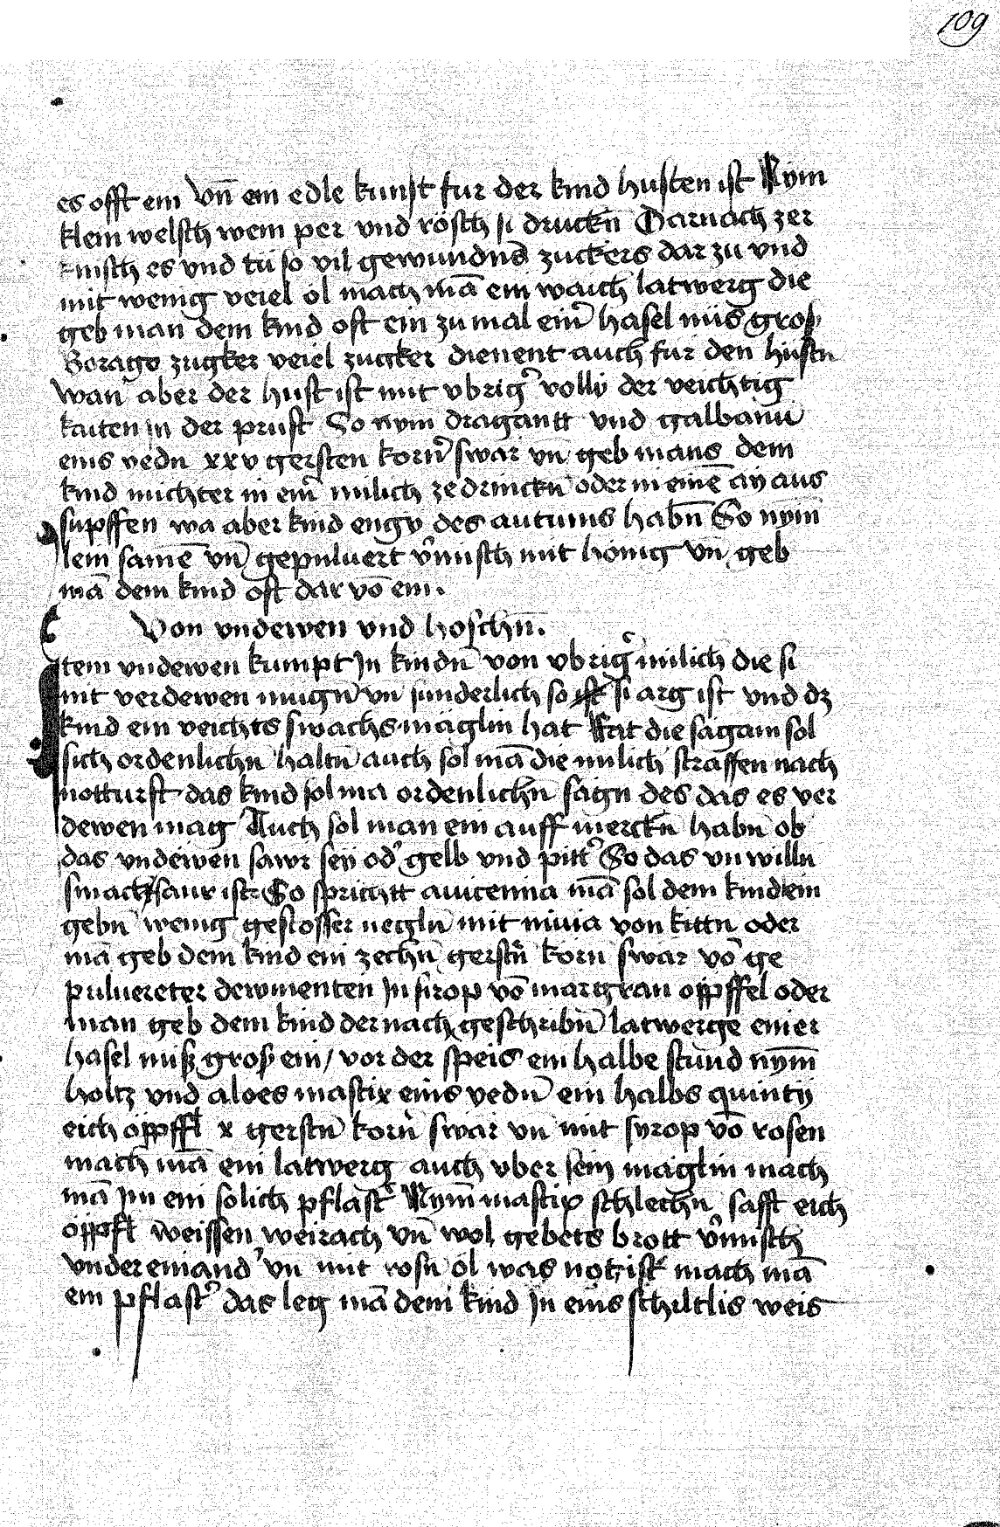 109
es offt ein Vn̄ ein edle kunst fur der kind husten ist Nym
klein welsch wein per vnd rösch si druckñ Darnach zer
knisch es vnd tů so vil gewundns zuckers dar zu vnd
mit wenig veiel öl mach mā ein waich latwerg die
geb man dem kind oft ein zu mal ein̄ hasel nüs groß
Borago zugker veiel zucker dienent auch fur den hüstn
Wan̄ aber der hust ist mit vbrig̾ volly der veichtig
kaiten in der prust So nym dragantt vnd galbanū
eins yedn xxv gersten korn̄ swar vn̄ geb mans dem
kind nüchter in ein̄ milich ze drinckñ oder in einē ay aus
supffen wa aber kind engy des autums habn̄ So nym̄
lein samē vn̄ gepuluert v̄misch mit hönig vn̄ geb
mā dem kind oft dar vō ein.
Von vndewen vnd hoschn̄.
Item vndewen kumpt Jn kindn̄ von vbrig̾ milich die si
nit verdewen mugn̄ vn̄ sunderlich so si arg ist vnd dz
kind ein veichts swachs mäglin hat Rat die sägam sol
sich ordenlichn̄ haltn̄ auch sol mā die milich straffen nach
notturft das kind sol ma ordenlichn̄ sägn des das es ver
dewen mag Auch sol man ein auff merckñ habn̄ ob
das vndewen sawr sey od̾ gelb vnd pitt̾ So das vnwilln
smach saur ist So sprichtt auicenna mā sol dem kindlein
gebn̄ wenig gestosser negln̄ mit miuia von kittn oder
mā geb dem kind ein zechn̄ gerstn̄ korn̄ swar vō ge
puluereter dewmenten Jn sirop vō margran öppffel oder
man geb dem kind der nach geschribn̄ latwerge einer
hasel nuß groß ein / vor der speis ein halbe stund nym̄
holtz vnd aloes mastix eins yedn̄ ein halbs quintij
eich öppffl x gerstn̄ korn̄ swar vn̄ mit syrop vō rosen
mach mā ein latwerg auch vber sein mäglin mach
mā im ein solich pflast̾ Nym̄ mastix schlechn̄ safft eich
öppfl weissen weirach vn̄ wol gebets brott v̄misch
vnder einand̾ vn̄ mit rosn̄ öl was not ist mach mā
ein pflast̾ das leg mā dem kind Jn eins schiltlis weis